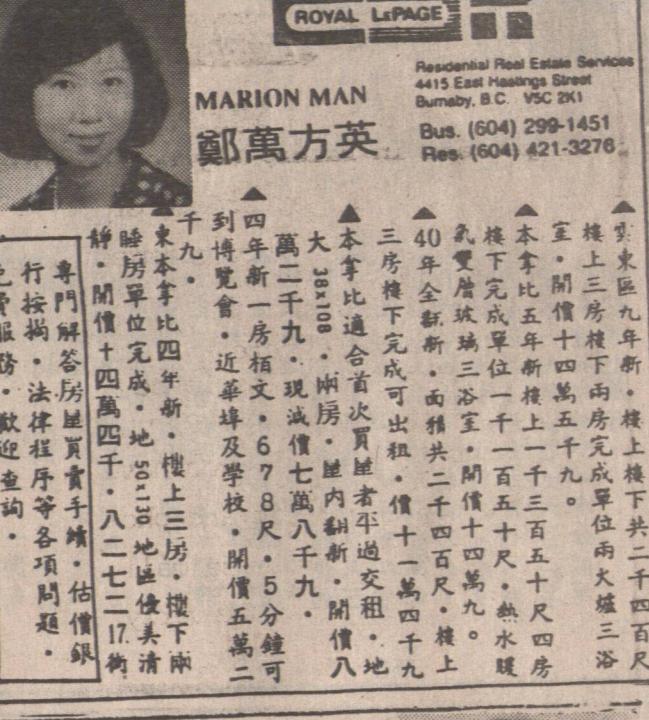 ROYAL LEPAGE
Residential Real Estate Services
4415 East Hastings Street
Burnaby, B.C. V5C 2K1
Bus. (604) 299-1451
Res. (604) 421-3276
MARION MAN
鄭萬方英
▲東區九年新。樓上樓下共二千四百尺
樓上三房樓下兩房完成單位兩大爐三浴
室。開價十四萬五千九。
▲本拿比五年新樓上一千三百五十尺四房
樓下完成單位一千一百五十尺。熱水暖
氣雙層玻璃三浴室。開價十四萬九。
▲40年全翻新。面積共二千四百尺。樓上
三房樓下完成可出租。價十一萬四千九
▲本拿比適合首次買屋者平過交租。地
大 38x108。兩房。屋內翻新。開價八
萬二千九。現減價七萬八千九。
▲四年新一房栢文。678尺。5分鐘可
到博覽會。近華埠及學校。開價五萬二
千九。
▲東本拿比四年新。樓上三房。樓下兩
睡房單位完成。地 50x130 地區優美清
靜。開價十四萬四千。八二七二 17街
專門解答房屋買賣手續。估價銀
行按揭。法律程序等各項問題。
免費服務。歡迎查詢。